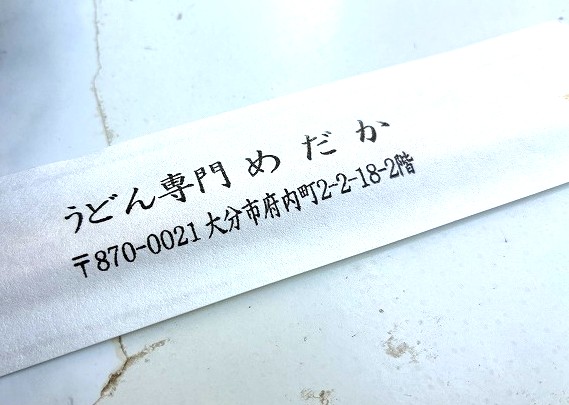 うどん専門 めだか
〒870-0021 大分市府内町2-2-18-2階